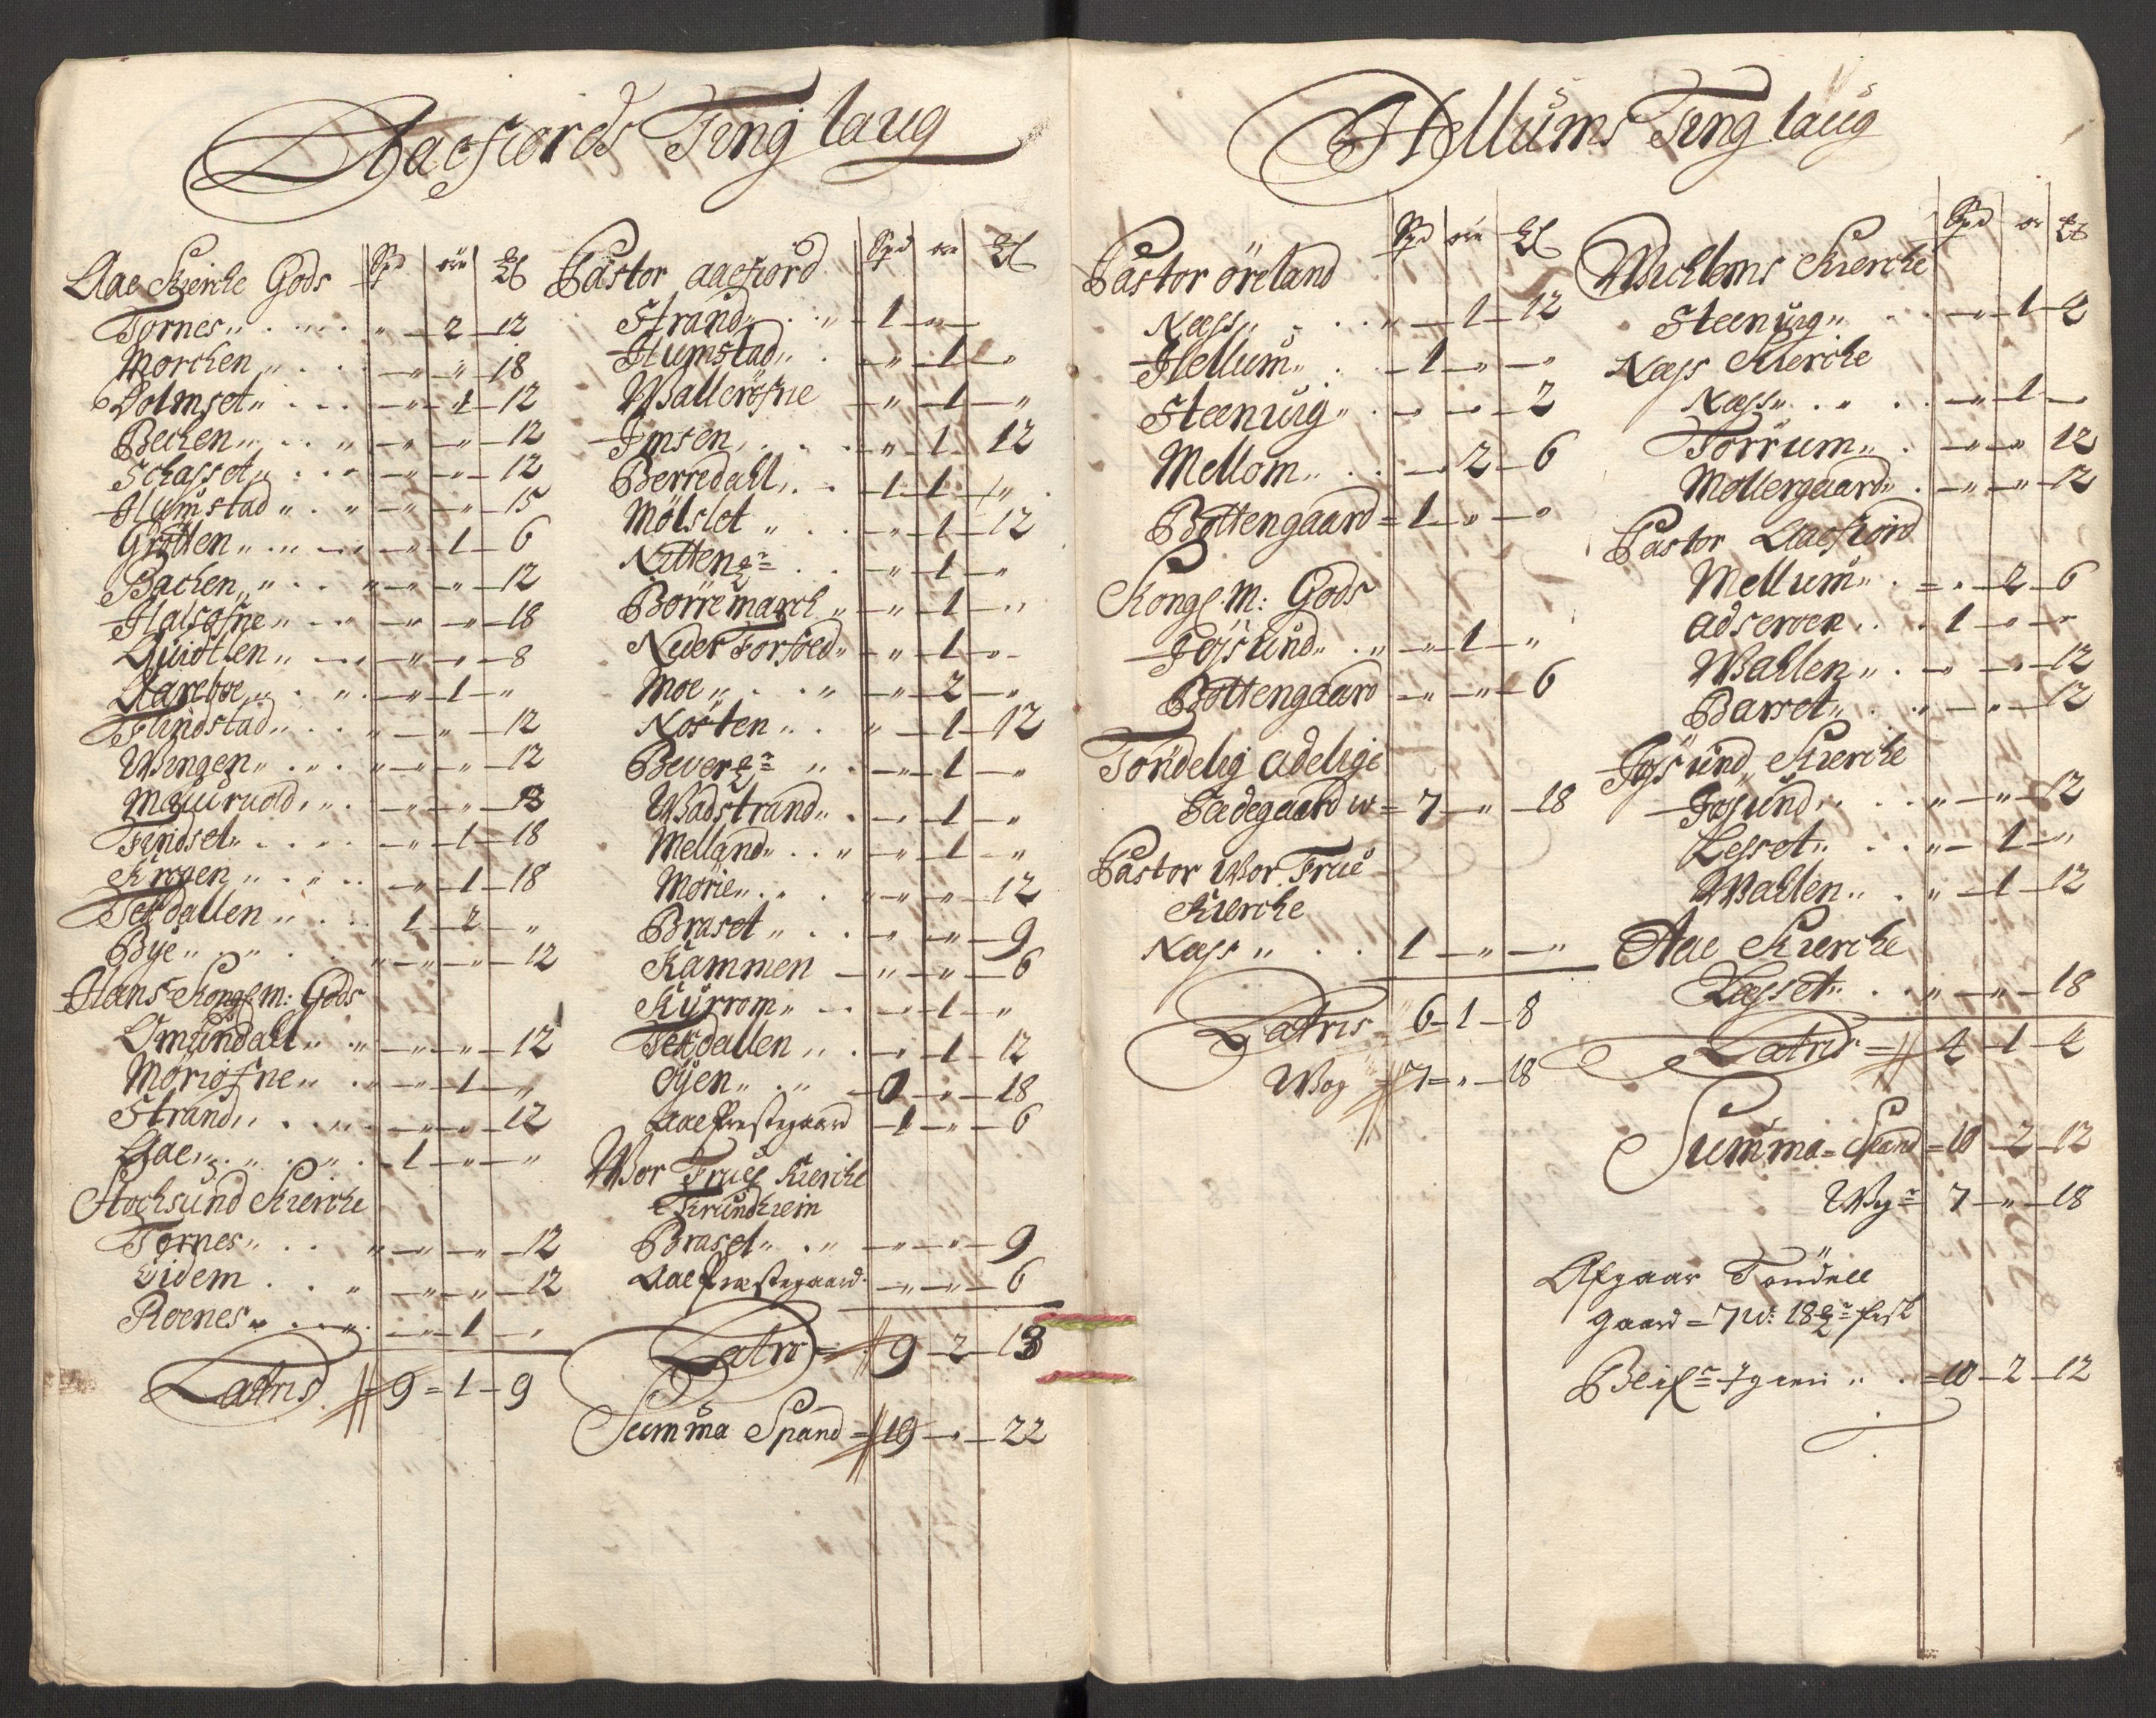 Aaefiords Ting laug
Aae Kierche Gods Spd øre
Tornes „ — 2 — 12
Morchen „ — „ — 18
Dolmset „ — 1 — 12
Bechen „ — „ — 12
Schasset „ — „ — 12
Humstad „ — „ — 15
Gritten „ — 1 — 6
Bachen „ — „ — 12
Halsøfne „ — „ — 18
Quidtlen „ — „ — 8
Aareboe „ — 1 — „
Findstad „ — „ — 12
Wingen „ — „ — 12
Findset „ — 1 — 18
Krogen „ — 1 — 18
Tetdallen 1 — 2 — „
Bye „ — „ — 12
Hans Kongl M: Gods
Omundall „ — „ — 12
Moriofne „ — 1 — „
Strand „ — „ — 12
Aae 1 — „ — „
Stochsund Kierche
Tornes „ — „ — 12
Eidem „ — „ — 12
Roenes „ — 1 — „
Latris 9 = 1 — 9
Pastor aaefiord Spd øre
Strand 1 — „ —
Humstad „ — 1 — „
Wallersøfne „ — 1 — „
Imsen „ — 1 — 12
Berredall 1 — 1 — „
Mölslet „ — 1 — 12
Nitteng — 1 — „
Börremarch „ — 1 — „
Neder Forfoed „ — 1 — „
Moe „ — 2 — „
Nosten „ — 1 — 12
Beverg — 1 — „
Wadstrand — 1 — „
Melland „ — 1 — „
Morie „ — „ — 12
Braset „ — „ — 9
Kammen — „ — „ — 6
Kurrom „ — 1 — „
Tetdallen „ — 1 — 12
Oyen „ — „ — 18
Aae Prestegaard 1 — „ — 6
Wor Frue Kierche
Trundhiem
Braset „ — „ — 9
Aae Prestegaard „ — „ — 6
Latris = 9 — 2 — 13
Summa Spand = 19 — „ — 22
Hellums Ting laug
Pastor öreland Spd øre
Næss „ — 1 — 12
Hellum 1 — „ — „
Steenuig — „ — 2
Mellom — 2 — 6
Bottengaard = 1 — „ — „
Kongl. M: Gods
Fosund „ — 1 — „
Bottengaard „ — „ — 6
Töndelig adelige
Sædegaard w = 7 — „ — 18
Pastor Wor Frue
Kierche
Næss „ 1 — „ — „
Latris 6 — 1 — 8
Wog 7 = „ — 18
Wichlems Kierche Spd ør
Steenuig „ — 1 — 2
Næss Kierche
Næss „ — 1 —
Torrum „ — „ 12
Mollergaard „ — „ — 12
Pastor Aaefiord
Mellum „ = „ — 2 — 6
Adseroen 1 — „ — „
Wallen „ — „ — 12
Barset „ — „ — 12
Josund Kierche
Fosund „ — „ — 12
Lesset „ — 1 — „
Wallen „ — 1 — 12
Aae Kierche
Læsset „ — „ — 18
Latris = 4 — 1 — 4
Summa = Spand = 10 — 2 — 12
Wog 7 — „ — 18
Afgaar Tondell
gaard = 7 w: 18
igien = 10 — 2 — 12